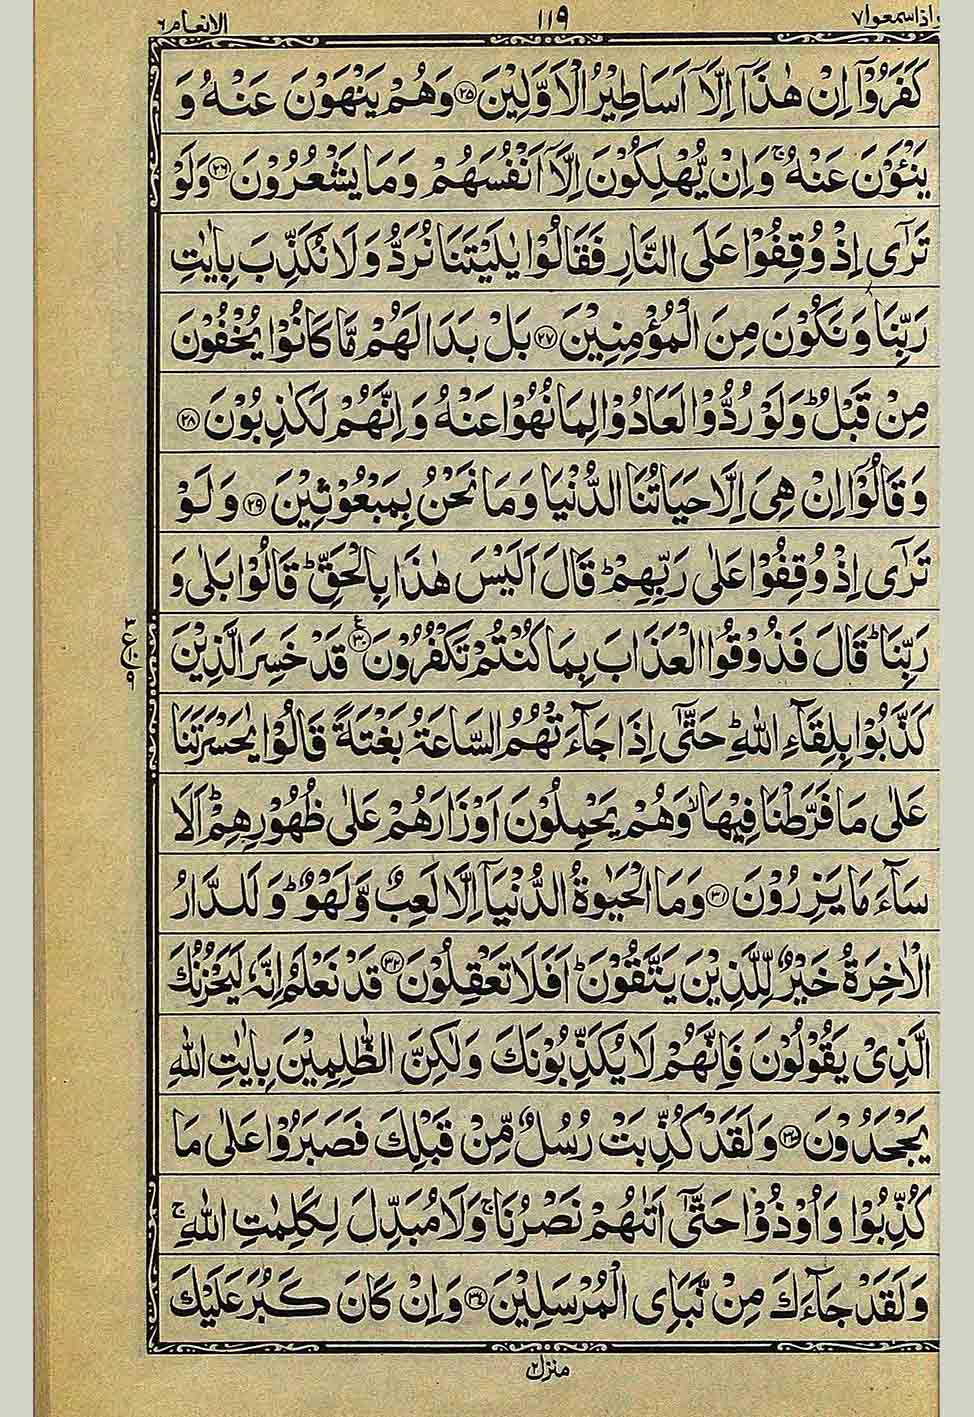 واذاسمعوا٧ ١١٩ الانعام٦
كَفَرُوْٓا اِنْ هٰذَآ اِلَّآ اَسَاطِيْرُ الْاَوَّلِيْنَ ۝٢٥ وَهُمْ يَنْهَوْنَ عَنْهُ وَ
يَنْـَٔوْنَ عَنْهُ ۚ وَاِنْ يُّهْلِكُوْنَ اِلَّآ اَنْفُسَهُمْ وَمَا يَشْعُرُوْنَ ۝٢٦ وَلَوْ
تَرٰٓى اِذْ وُقِفُوْا عَلَى النَّارِ فَقَالُوْا يٰلَيْتَنَا نُرَدُّ وَلَا نُكَذِّبَ بِاٰيٰتِ
رَبِّنَا وَنَكُوْنَ مِنَ الْمُؤْمِنِيْنَ ۝٢٧ بَلْ بَدَا لَهُمْ مَّا كَانُوْا يُخْفُوْنَ
مِنْ قَبْلُ ؕ وَلَوْ رُدُّوْا لَعَادُوْا لِمَا نُهُوْا عَنْهُ وَاِنَّهُمْ لَكٰذِبُوْنَ ۝٢٨
وَقَالُوْٓا اِنْ هِىَ اِلَّا حَيَاتُنَا الدُّنْيَا وَمَا نَحْنُ بِمَبْعُوْثِيْنَ ۝٢٩ وَلَوْ
تَرٰٓى اِذْ وُقِفُوْا عَلٰى رَبِّهِمْ ؕ قَالَ اَلَيْسَ هٰذَا بِالْحَقِّ ؕ قَالُوْا بَلٰى وَ
رَبِّنَا ؕ قَالَ فَذُوْقُوا الْعَذَابَ بِمَا كُنْتُمْ تَكْفُرُوْنَ ۝٣٠ ع قَدْ خَسِرَ الَّذِيْنَ
كَذَّبُوْا بِلِقَآءِ اللّٰهِ ؕ حَتّٰٓى اِذَا جَآءَتْهُمُ السَّاعَةُ بَغْتَةً قَالُوْا يٰحَسْرَتَنَا
عَلٰى مَا فَرَّطْنَا فِيْهَا ۙ وَهُمْ يَحْمِلُوْنَ اَوْزَارَهُمْ عَلٰى ظُهُوْرِهِمْ ؕ اَلَا
سَآءَ مَا يَزِرُوْنَ ۝٣١ وَمَا الْحَيٰوةُ الدُّنْيَآ اِلَّا لَعِبٌ وَّلَهْوٌ ؕ وَلَلدَّارُ
الْاٰخِرَةُ خَيْرٌ لِّلَّذِيْنَ يَتَّقُوْنَ ؕ اَفَلَا تَعْقِلُوْنَ ۝٣٢ قَدْ نَعْلَمُ اِنَّهٗ لَيَحْزُنُكَ
الَّذِىْ يَقُوْلُوْنَ فَاِنَّهُمْ لَا يُكَذِّبُوْنَكَ وَلٰكِنَّ الظّٰلِمِيْنَ بِاٰيٰتِ اللّٰهِ
يَجْحَدُوْنَ ۝٣٣ وَلَقَدْ كُذِّبَتْ رُسُلٌ مِّنْ قَبْلِكَ فَصَبَرُوْا عَلٰى مَا
كُذِّبُوْا وَاُوْذُوْا حَتّٰٓى اَتٰىهُمْ نَصْرُنَا ۚ وَلَا مُبَدِّلَ لِكَلِمٰتِ اللّٰهِ ۚ
وَلَقَدْ جَآءَكَ مِنْ نَّبَاِى الْمُرْسَلِيْنَ ۝٣٤ وَاِنْ كَانَ كَبُرَ عَلَيْكَ
منزل٢